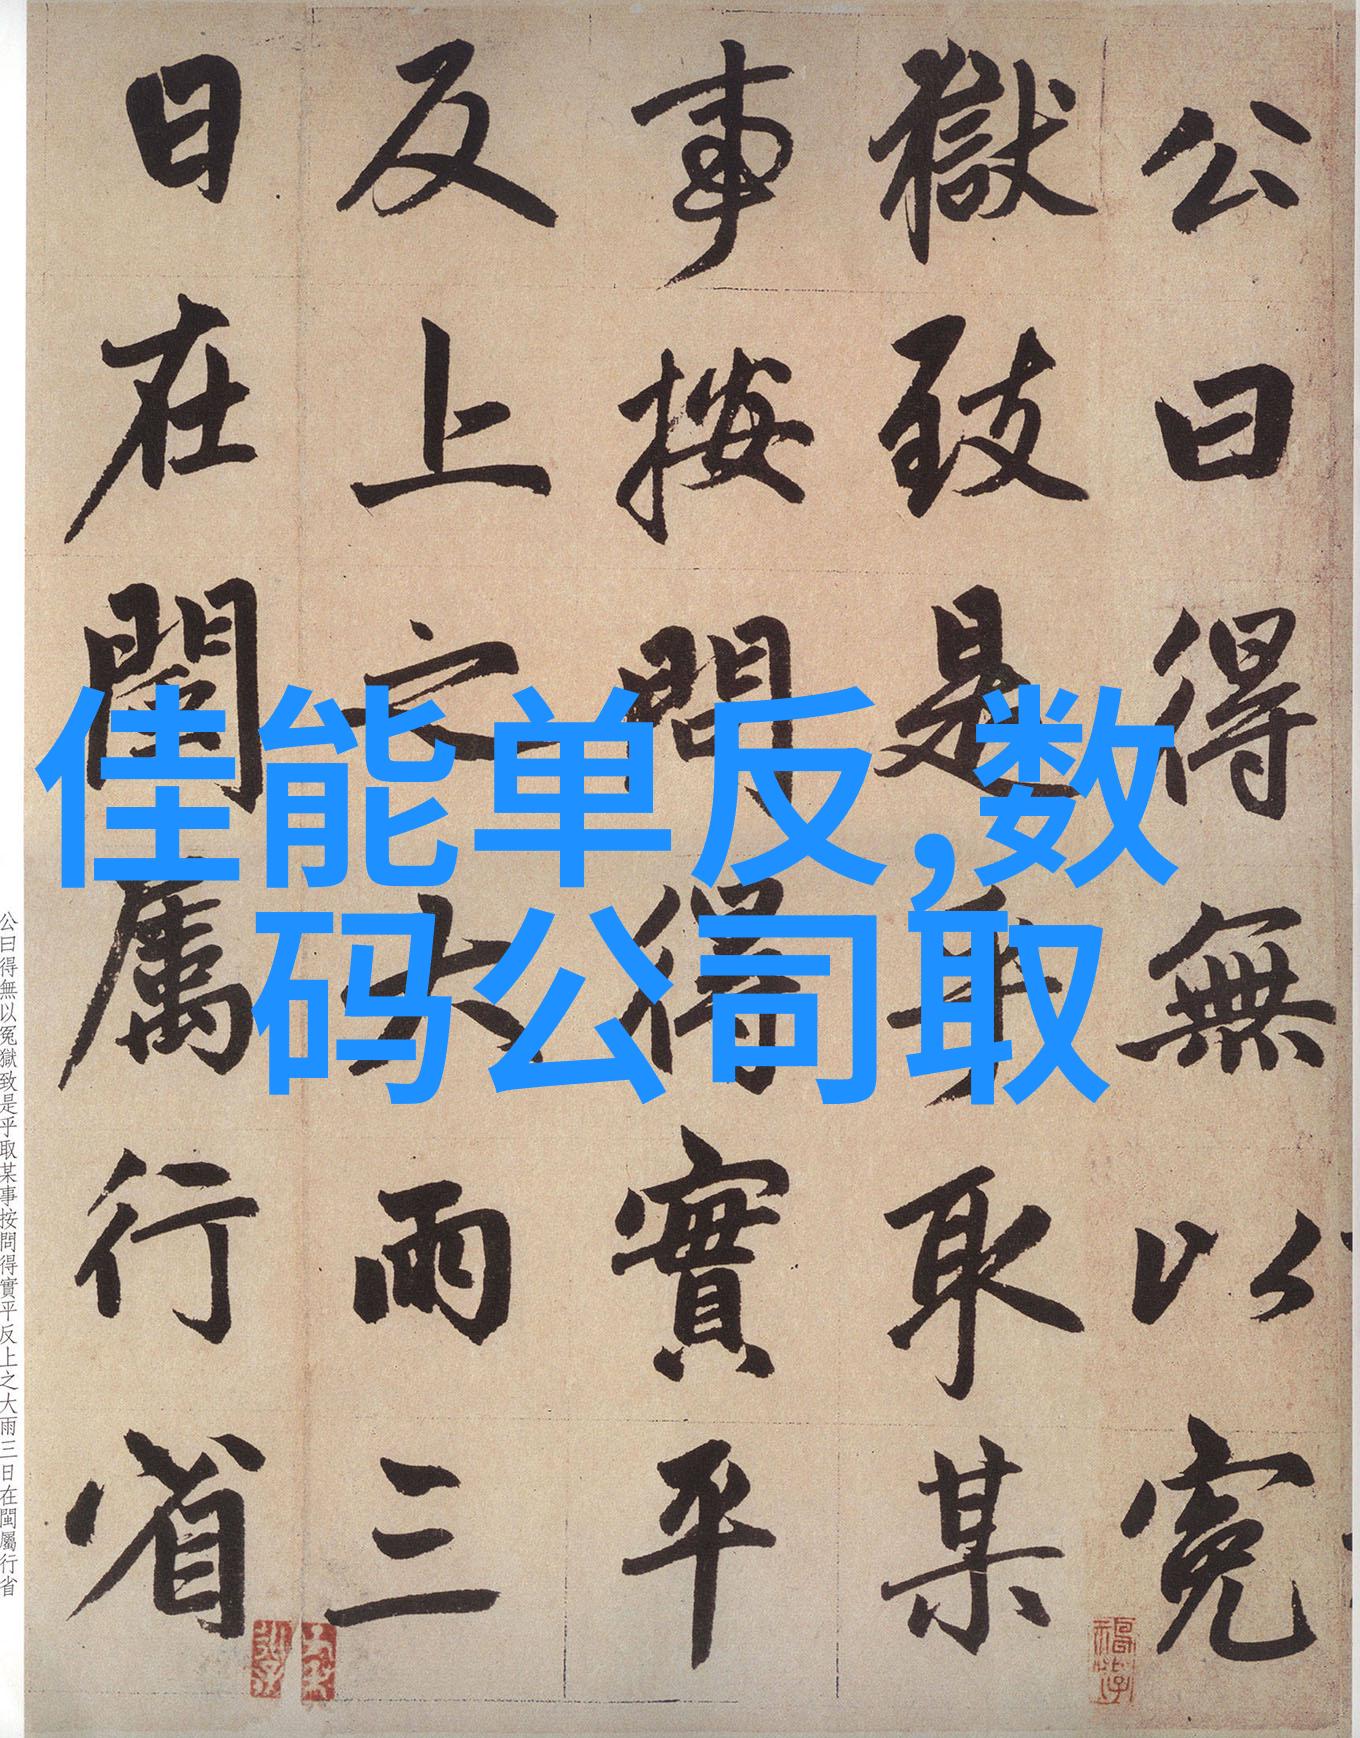 公曰得無以冤
獄致是乎取某
事按問得實平
反上之大雨三
日在閩屬行省
佳能单反,数
码公司取
公曰得無以冤獄致是乎取某事按問得實平反上之大雨三日在閩屬行省